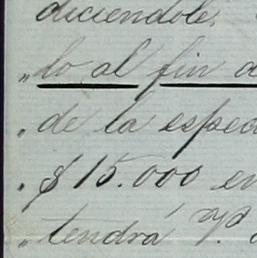 diciendole,
„lo al fin
„de la
„$15.000 en
„tendrá V.